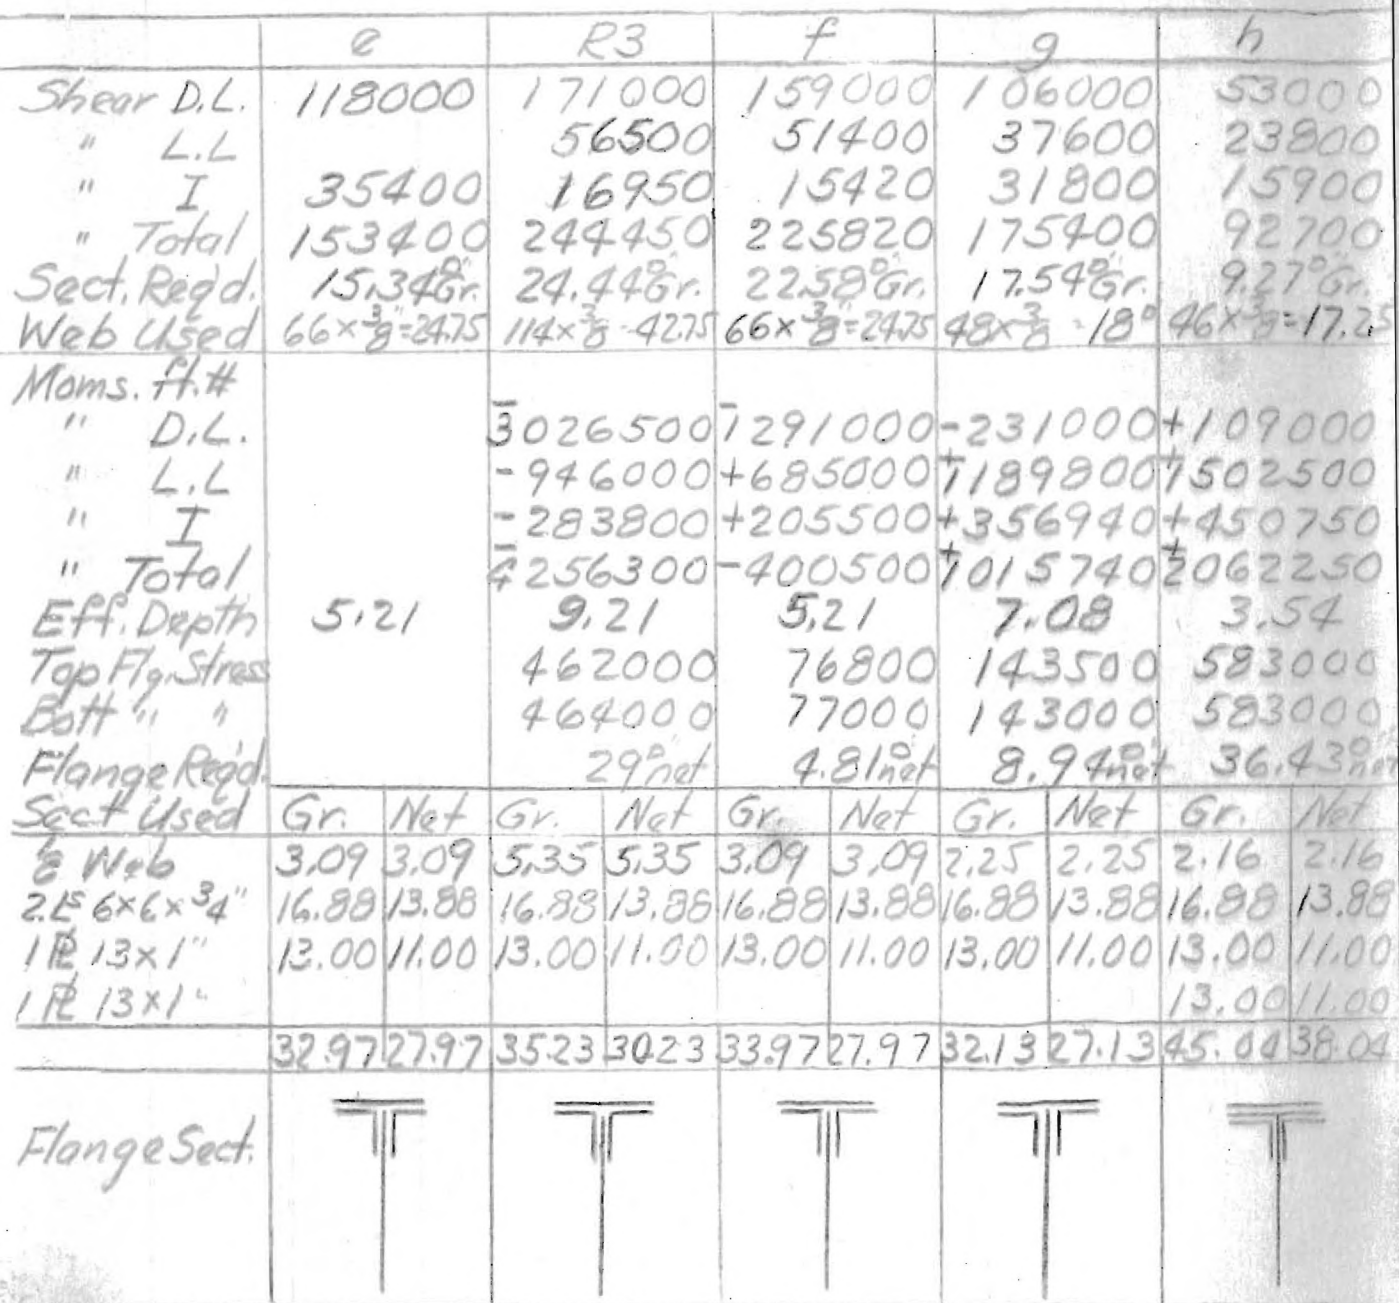 e R3 f g h
Shear D.L. 118000 171000 159000 106000 53000
" L.L 56500 51400 37600 23800
" I 35400 16950 15420 31800 15900
" Total 153400 244450 225820 175400 92700
Sect. Req'd. 15.34□" Gr. 24.44□" Gr. 22.58□" Gr. 17.54□" Gr. 9.27□" Gr.
Web Used 66×3/8"=24.75 114×3/8=42.75 66×3/8"=24.75 48×3/8=18□ 46×3/8=17.25
Moms. ft.#
" D.L. -3026500 -1291000 -231000 +109000
" L.L -946000 +685000 +1189800 +1502500
" I -283800 +205500 +356940 +450750
" Total -4256300 -400500 +1015740 +2062250
Eff. Depth 5.21 9.21 5.21 7.08 3.54
Top Flg. Stress 462000 76800 143500 583000
Bott " " 464000 77000 143000 583000
Flange Req'd. 29□" net 4.81□" net 8.94□" net 36.43□ net
Sect Used Gr. Net Gr. Net Gr. Net Gr. Net Gr. Net
1/8 Web 3.09 3.09 5.35 5.35 3.09 3.09 2.25 2.25 2.16 2.16
2 Ls 6×6×3/4" 16.88 13.88 16.88 13.88 16.88 13.88 16.88 13.88 16.88 13.88
1 PL 13×1" 13.00 11.00 13.00 11.00 13.00 11.00 13.00 11.00 13.00 11.00
1 PL 13×1" 13.00 11.00
32.97 27.97 35.23 30.23 33.97 27.97 32.13 27.13 45.04 38.04
Flange Sect.